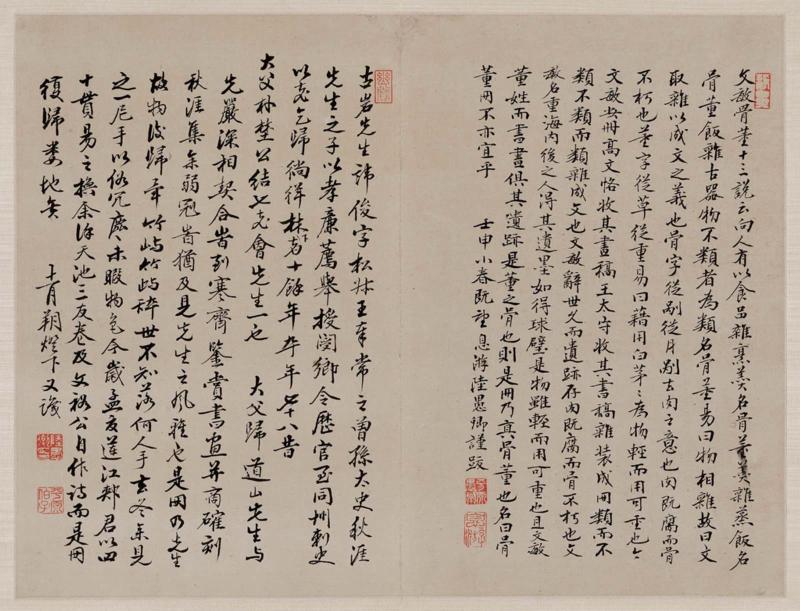 文敏骨董十三說云向人有以食品雜烹羹名骨董羹雜蒸飯名
骨董飯雜古器物不類者為類名骨董易曰物相雜故曰文
取雜以成文之義也骨字從剮從月剮去肉之意也肉既腐而骨
不朽也董字從草從重易曰藉用白茅茅為物輕而用可重也今
文敏此冊高文恪收其畫稿王太守收其書稿雜裝成冊類而不
類不類而類雜成文也文敏辭世久而遺跡存肉既腐而骨不朽也文
敏名重海內後之人得其遺墨如得球璧是物雖輕而用可重也且文敏
董姓而書畫俱其遺跡是董之骨也則是冊乃真骨董也名曰骨
董冊不亦宜乎　壬申小春既望息游陸愚卿謹跋
古岩先生諱俊字松卅王奉常之曾孫太史秋涯
先生之子以孝廉薦舉授閿鄉令歷官至同州刺史
以老乞歸徜徉林下者十餘年卒年七十八昔
大父朴埜公結七老會先生一也　大父歸道山先生與
先嚴深相契合時到寒齋鑒賞書畫并商確刻
秋涯集余弱冠時猶及見先生之風雅也是冊乃先生
故物後歸章竹嶼竹嶼辭世不知落何人手去冬余見
之一邑手以俗冗鹿鹿未暇物色今歲孟夏蓮江鄰君以四
十貫易之換余許天池二友卷及文裕公自作詩而是冊
復歸婁地矣　十月朔燈下又識